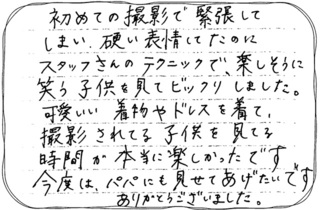 初めての撮影で緊張して
しまい、硬い表情してたのに
スタッフさんのテクニックで、楽しそうに
笑う子供を見てビックリしました。
可愛いい着物やドレスを着て、
撮影されてる子供を見てる
時間が本当に楽しかったです
今度は、パパにも見せてあげたいです
ありがとうございました。